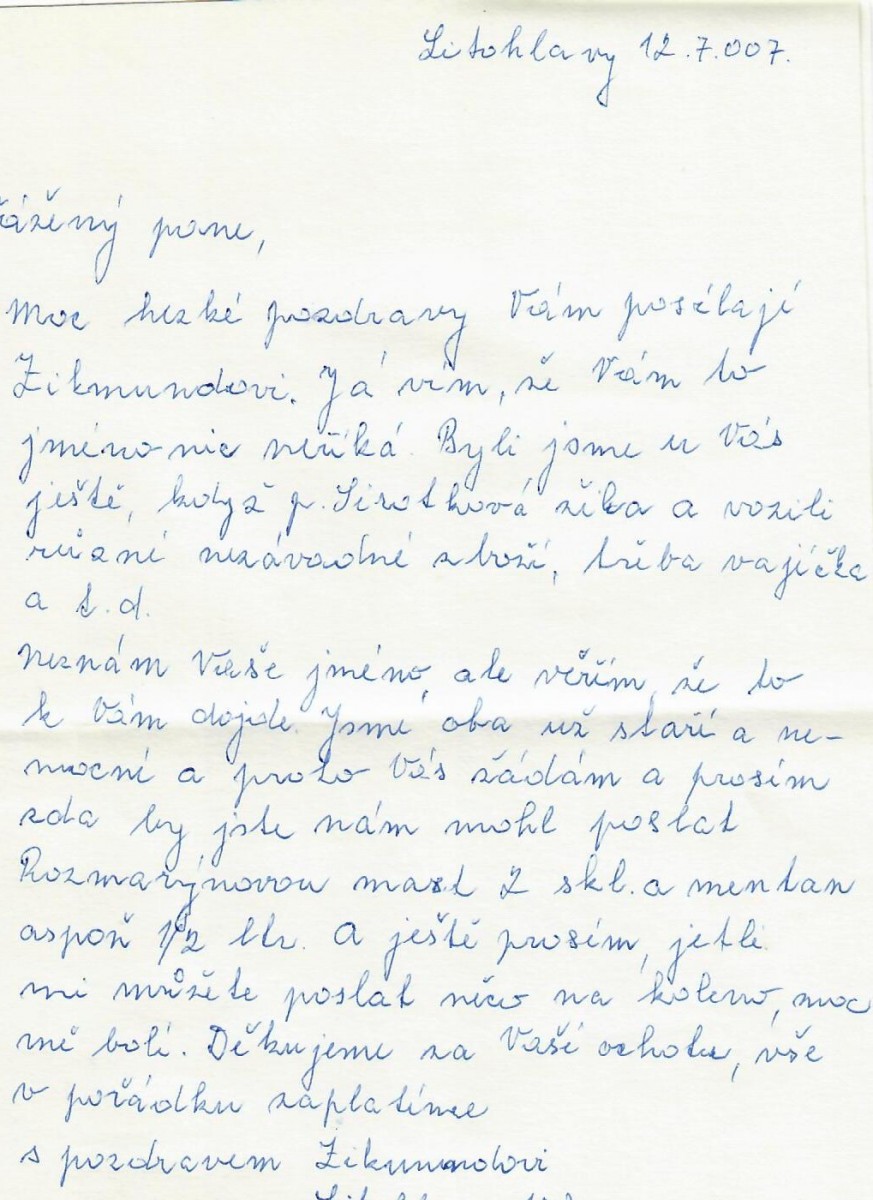 Litohlavy 12.7.007.
ážený pane,
Moc hezké pozdravy Vám posílají
Zikmundovi. Já vím, že Vám to
jméno nic neříká. Byli jsme u Vás
ještě, když p. Sirotková žila a vozili
různé nezávadné zboží, třeba vajíčka
a t.d.
Neznám Vaše jméno, ale věřím, že to
k Vám dojde. Jsme oba už staří a ne-
mocní a proto Vás žádám a prosím
zda by jste nám mohl poslat
Rozmarýnovou mast 2 skl. a mentan
aspoň 1/2 ltr. A ještě prosím, jetli
mi můžete poslat něco na koleno, moc
mě bolí. Děkujeme za Vaši ochotu, vše
v pořádku zaplatíme
s pozdravem Zikmundovi